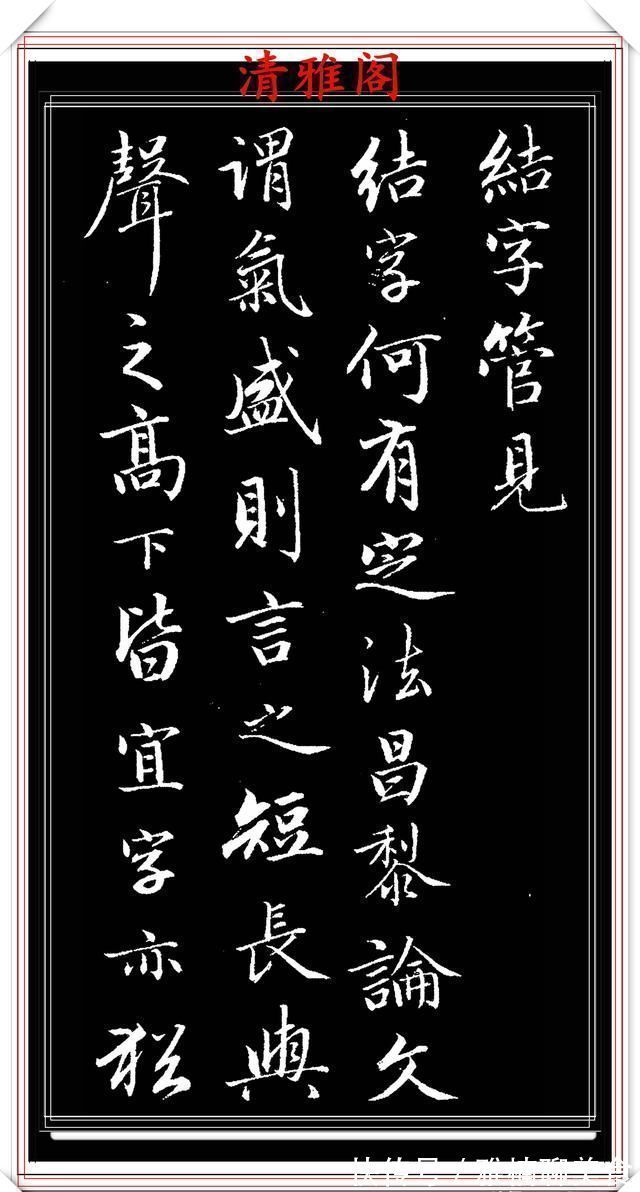 清雅阁
結字管見
结字何有定法昌黎論文
谓氣盛則言之短長與
聲之高下皆宜字亦猶
快传号/雅楠聊美食